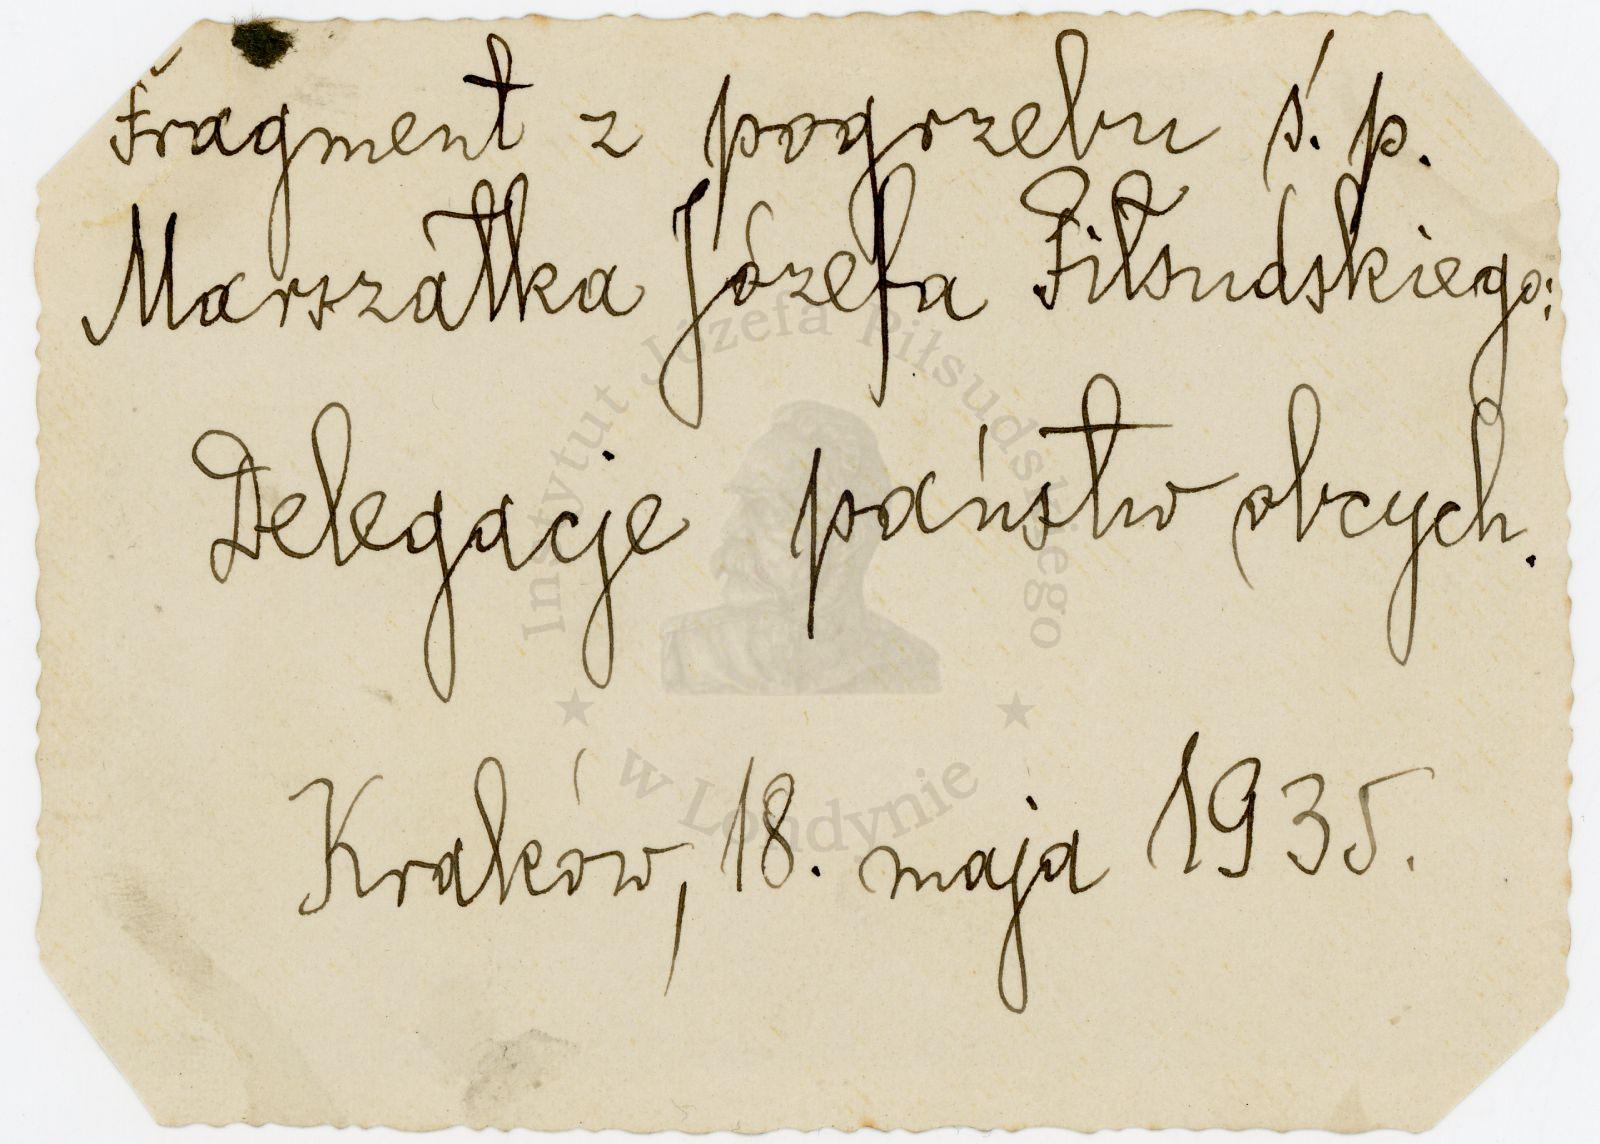 Fragment z pogrzebu ś. p.
Marszałka Józefa Piłsudskiego:
Delegacje państw obcych.
Kraków, 18. maja 1935.
Instytut Józefa Piłsudskiego
w Londynie